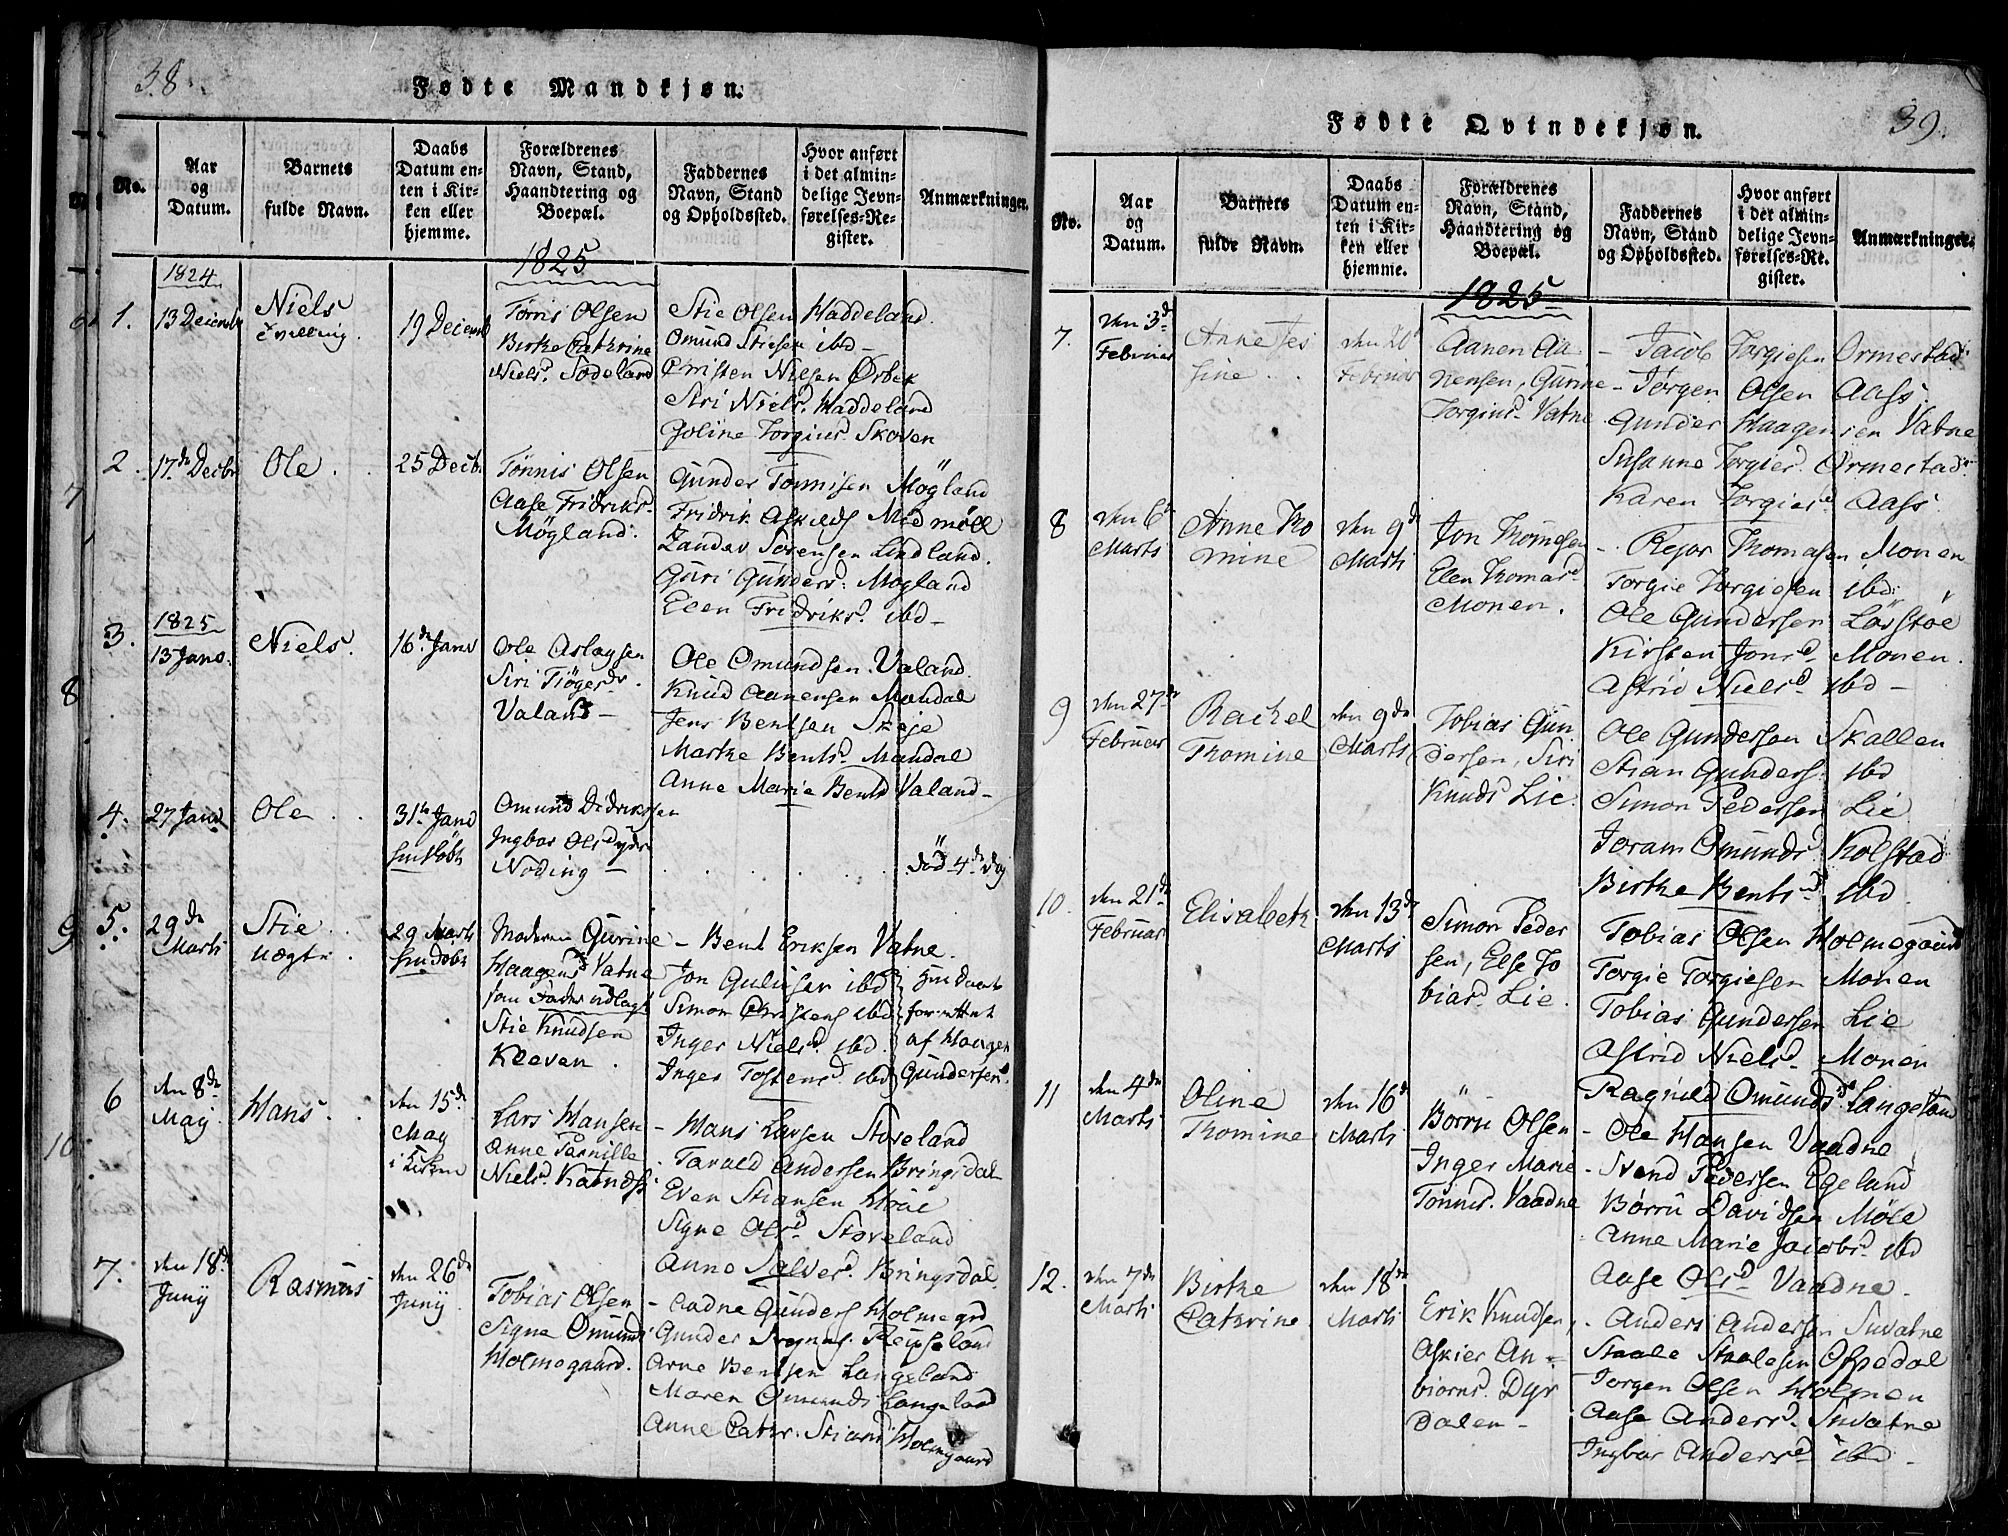 38.
Fødte Mandkjøn.
No.
Aar og Datum.
Barnets fulde Navn.
Daabs Datum enten i Kirken eller hjemme.
Forældrenes Navn, Stand, Haandtering og Boepæl.
Faddernes Navn, Stand og Opholdssted.
Hvor anført i det almindelige Jevnførelses-Register.
Anmærkninger.
1825
1824
1. 13 Decemb
Niels
Tvilling.
19 Decemb
Tørris Olsen
Birke Cathrine
Nielsd. Sodeland
Stie Olsen Haddeland.
Omund Stiesen ibd-
Christen Nielsen Ørbek
Siri Nielsd. Haddeland
Joline Torgiusd. Skoven
2. 17de Decbr
Ole.
25 Decb.
Tønnis Olsen
Aase Fridriksd.
Mögland.
Gunder Tönnisen Mögland
Fridrik Askilds Midmöll
Zander Sörensen Lindland.
Guri Gunders: Mögland
Elen Fridriksd. ibd-
1825
3. 13 Janv.
Niels.
16de Janv
Ole Aslagsen
Siri Tiøgersd.
Valand-
Ole Omundsen Valand.
Knud Aanensen Mandal
Jens Bentsen Skeje
Marthe Bentsd. Mandal
Anne Marie Bentsd Valand-
4. 27 Janv
Ole
31te Janv
hmdöbt
Omund Didriksen
Ingbor Olsd
Noding-
död 4de Dag
5. 29de Marts
Stie
uægte.
29 Marts
hmdøbt
Moderen Gurine
Haagensd Vatne
som Fader udlagt
Stie Knudsen
Kleven.
- Bent Eriksen Vatne.
Jon Gulufsen ibd
Simon Christens ibd
Inger Nielsd. ibd.
Inger Tostensd ibd
Hiemdaabt
forrettet
af Haagen
Gundersen.
6 den 8de May.
Hans.
den 15de
May
i Kirken
Lars Hansen
Anne Pernille
Nielsd. Katnds
- Hans Larsen Stoveland
Tarald Andersen Bringsdal
Even Stiansen Höie
Signe Olsd Stoveland
Anne Salvesd. Bringsdal
7. den 18de Junij
Rasmus
den 26de
Junij
Tobias Olsen
Signe Omunds
Holmegaard.
- Aadne Gunders Holmegrd
Gunder Reipseland
Arne Bentsen Langeland
Maren Omunds Langeland
Anne Cathr. Stiansd Holmgaard
39.
Fødte Qvindekjøn.
No.
Aar og Datum.
Barnets fulde Navn.
Daabs Datum enten i Kirken eller hjemme.
Forældrenes Navn, Stand, Haandtering og Boepæl.
Faddernes Navn, Stand og Opholdssted.
Hvor anført i det almindelige Jevnførelses-Register.
Anmærkninger.
1825
7. den 3de Februar
Anne Jessine
den 20de
Februar
Aanen Aanensen, Gurine
Torgiusd. Vatne
- Jacob Torgiesen Ormestad
- Jørgen Olsen Aass.
Gunder Haagensen Vatne
Susanne Torgiesd. Ormestad
Karen Torgiesd Aass.
8 den 6te Marts
Anne Thomine
den 9de
Marts
Jon Thomesen
Elen Thomasd.
Monen.
- Rejar Thomasen Monen
Torgie Torgiesen ibd:
Ole Gundersen Løvstøe
Kirsten Jonsd. Monen.
Astrid Nielsd. ibd-
9 den 27de Februar
Rachel
Thomine
den 9de
Marts
Tobias Gundersen, Siri
Knuds Lie.
Ole Gundersen Skallen
Stian Gunders. ibd
Simon Pedersen Lie
Joram Omundsd. Kolstad
Birthe Bentsd ibd
10. den 21de Februar
Elisabeth
den 13de
Marts
Simon Pedersen, Else Tobiasd. Lie.
Tobias Olsen Holmegaard
Torgie Torgiesen Monen
Tobias Gundersen Lie
Astrid Nielsd. Monen
Ragnild Omundsd Langeland
11 den 4de Marts
Oline
Thomine
den 16de
Marts
Börru Olsen
Inger Marie
Tønnisd. Vaadne
- Ole Hansen Vaadne
- Svend Pedersen Egeland
Börru Davidsen Møle
Anne Marie Jacobsd. ibd
Aase Olsd Vaadne.
12. den 7de Marts
Birthe
Cathrine
den 18de
Marts
Erik Knudsen,
Askier Anbiornsd. Dyrdalen-
- Anders Andersen Suvatne
Staale Staalesen Ospedal
Jorgen Olsen Holmen
Aase Andersd. Suvatne
Ingbor Andersd ibd-